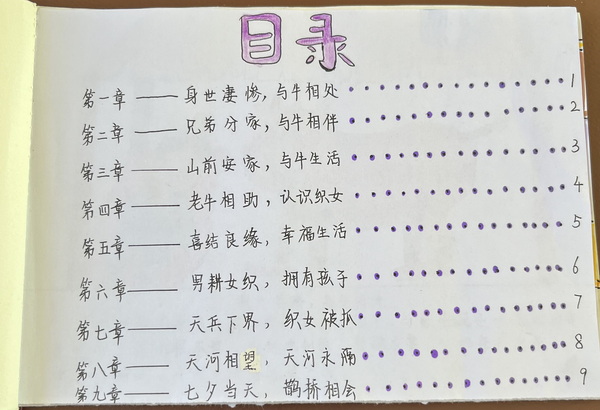 目录
第一章 —— 身世凄惨，与牛相处 1
第二章 —— 兄弟分家，与牛相伴 2
第三章 —— 山前安家，与牛生活 3
第四章 —— 老牛相助，认识织女 4
第五章 —— 喜结良缘，幸福生活 5
第六章 —— 男耕女织，拥有孩子 6
第七章 —— 天兵下界，织女被抓 7
第八章 —— 天河相望，天河永隔 8
第九章 —— 七夕当天，鹊桥相会 9